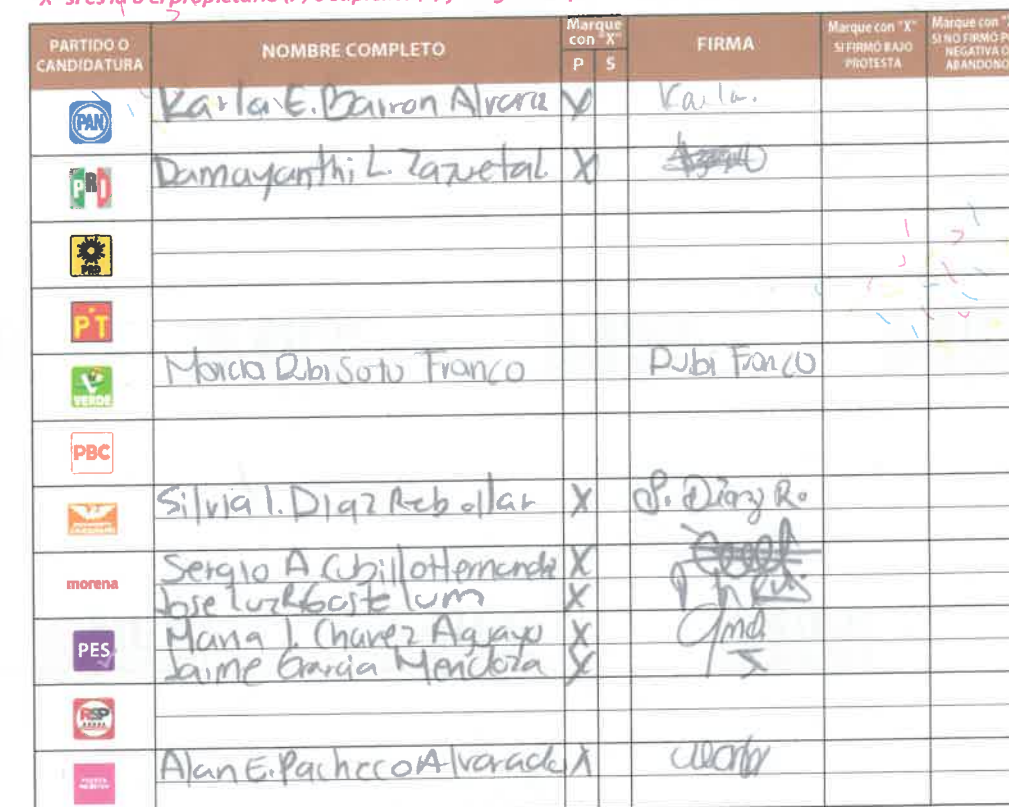 PARTIDO O CANDIDATURA NOMBRE COMPLETO Marque con "X" P S FIRMA Marque con "X" SI FIRMÓ BAJO PROTESTA Marque con "X" SI NO FIRMÓ NEGATIVA O ABANDONO
PAN Karla E. Barron Alvara X Karla.
PRI Damayanthi L. Zazuetal X
PRD
PT
VERDE Marcia Rubi Soto Franco Rubi Franco
PBC
Silvia I. Diaz Rebollar X S. Diaz R.
morena Sergio A Cubillo Hernande X
Jose Luz R X
PES Maria J. Chavez Aguayo X
Jaime Garcia Mendoza X
RSP
Alan E. Pacheco Alvarado X